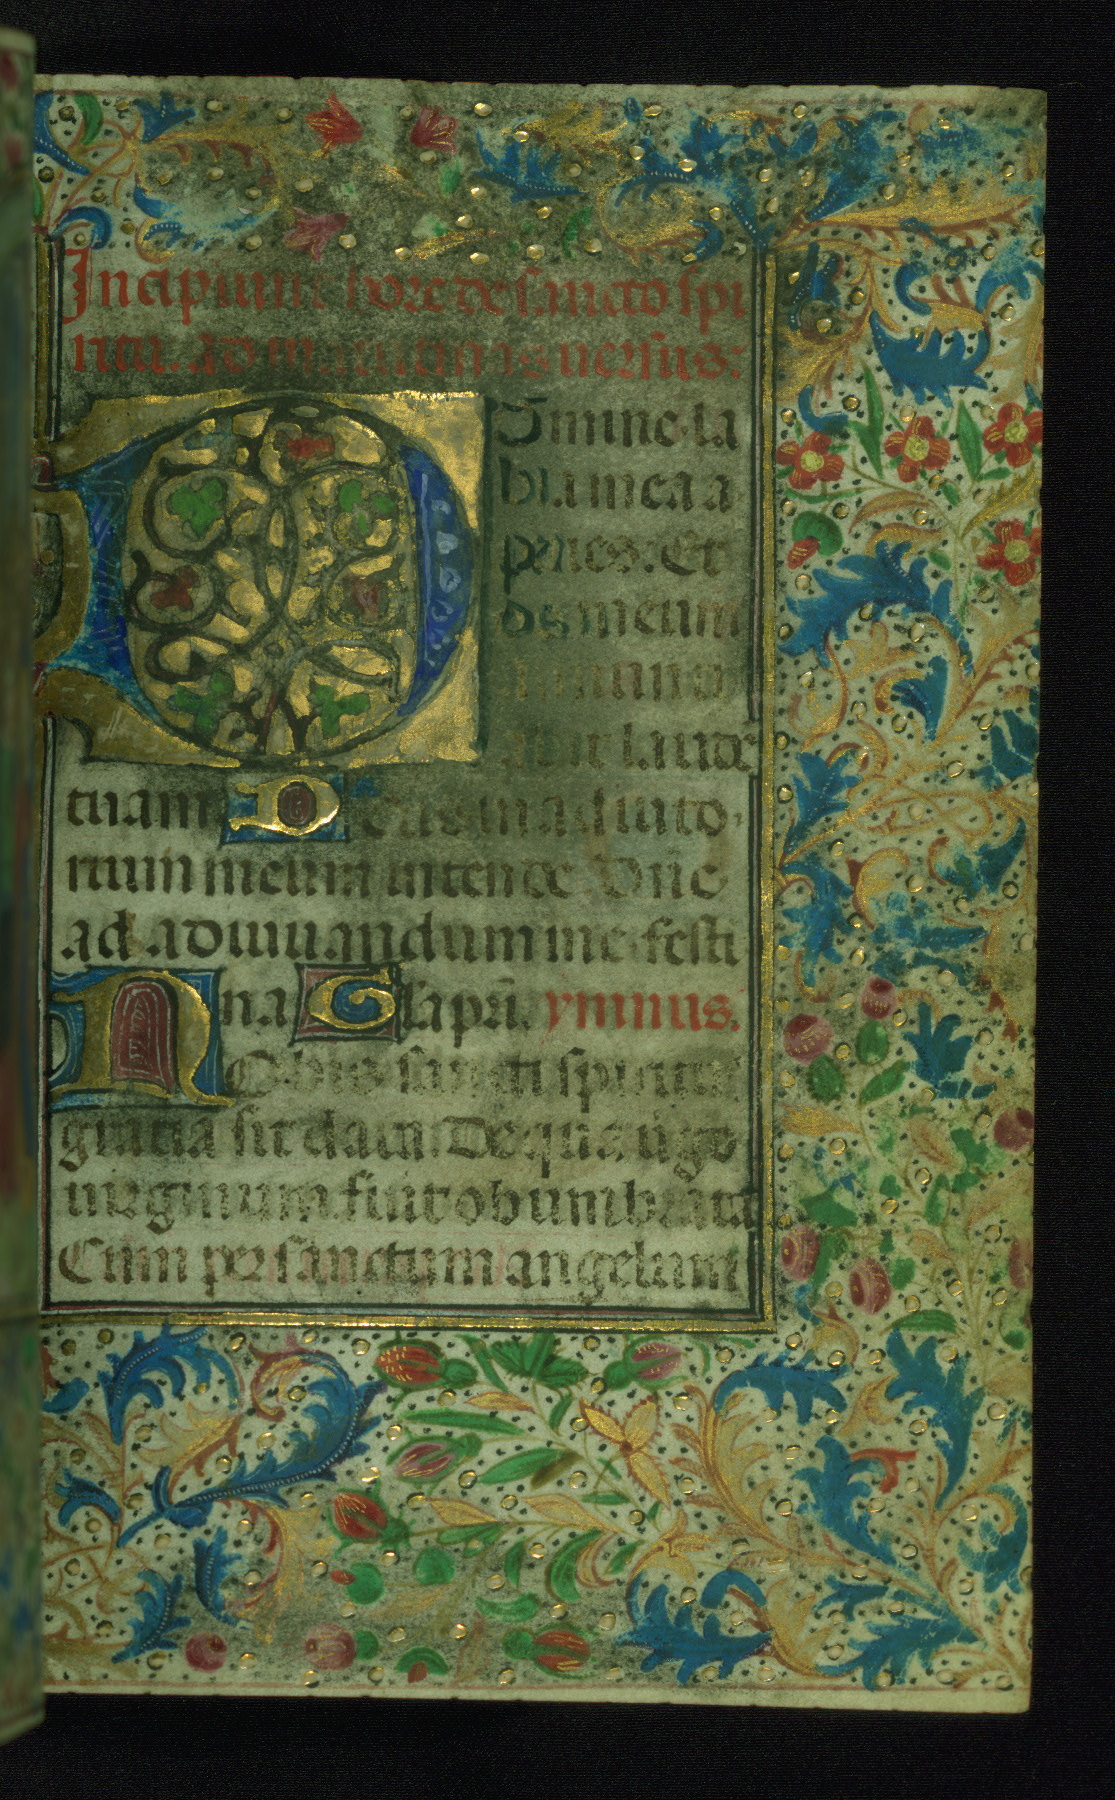 Incipiunt hore de sancto spi
ritu. ad matutinas uersus:
Domine la
bia mea a
peries. Et
os meum
annunci
abit laude
tuam Deus in adiuto
rium meum intende. Dne
ad adiuuandum me festi
na Gla pri. ymnus.
Nobis sancti spiritus
gratia sit data. De qua uirgo
uirginum fuit obumbrata
Cum per sanctum angelum